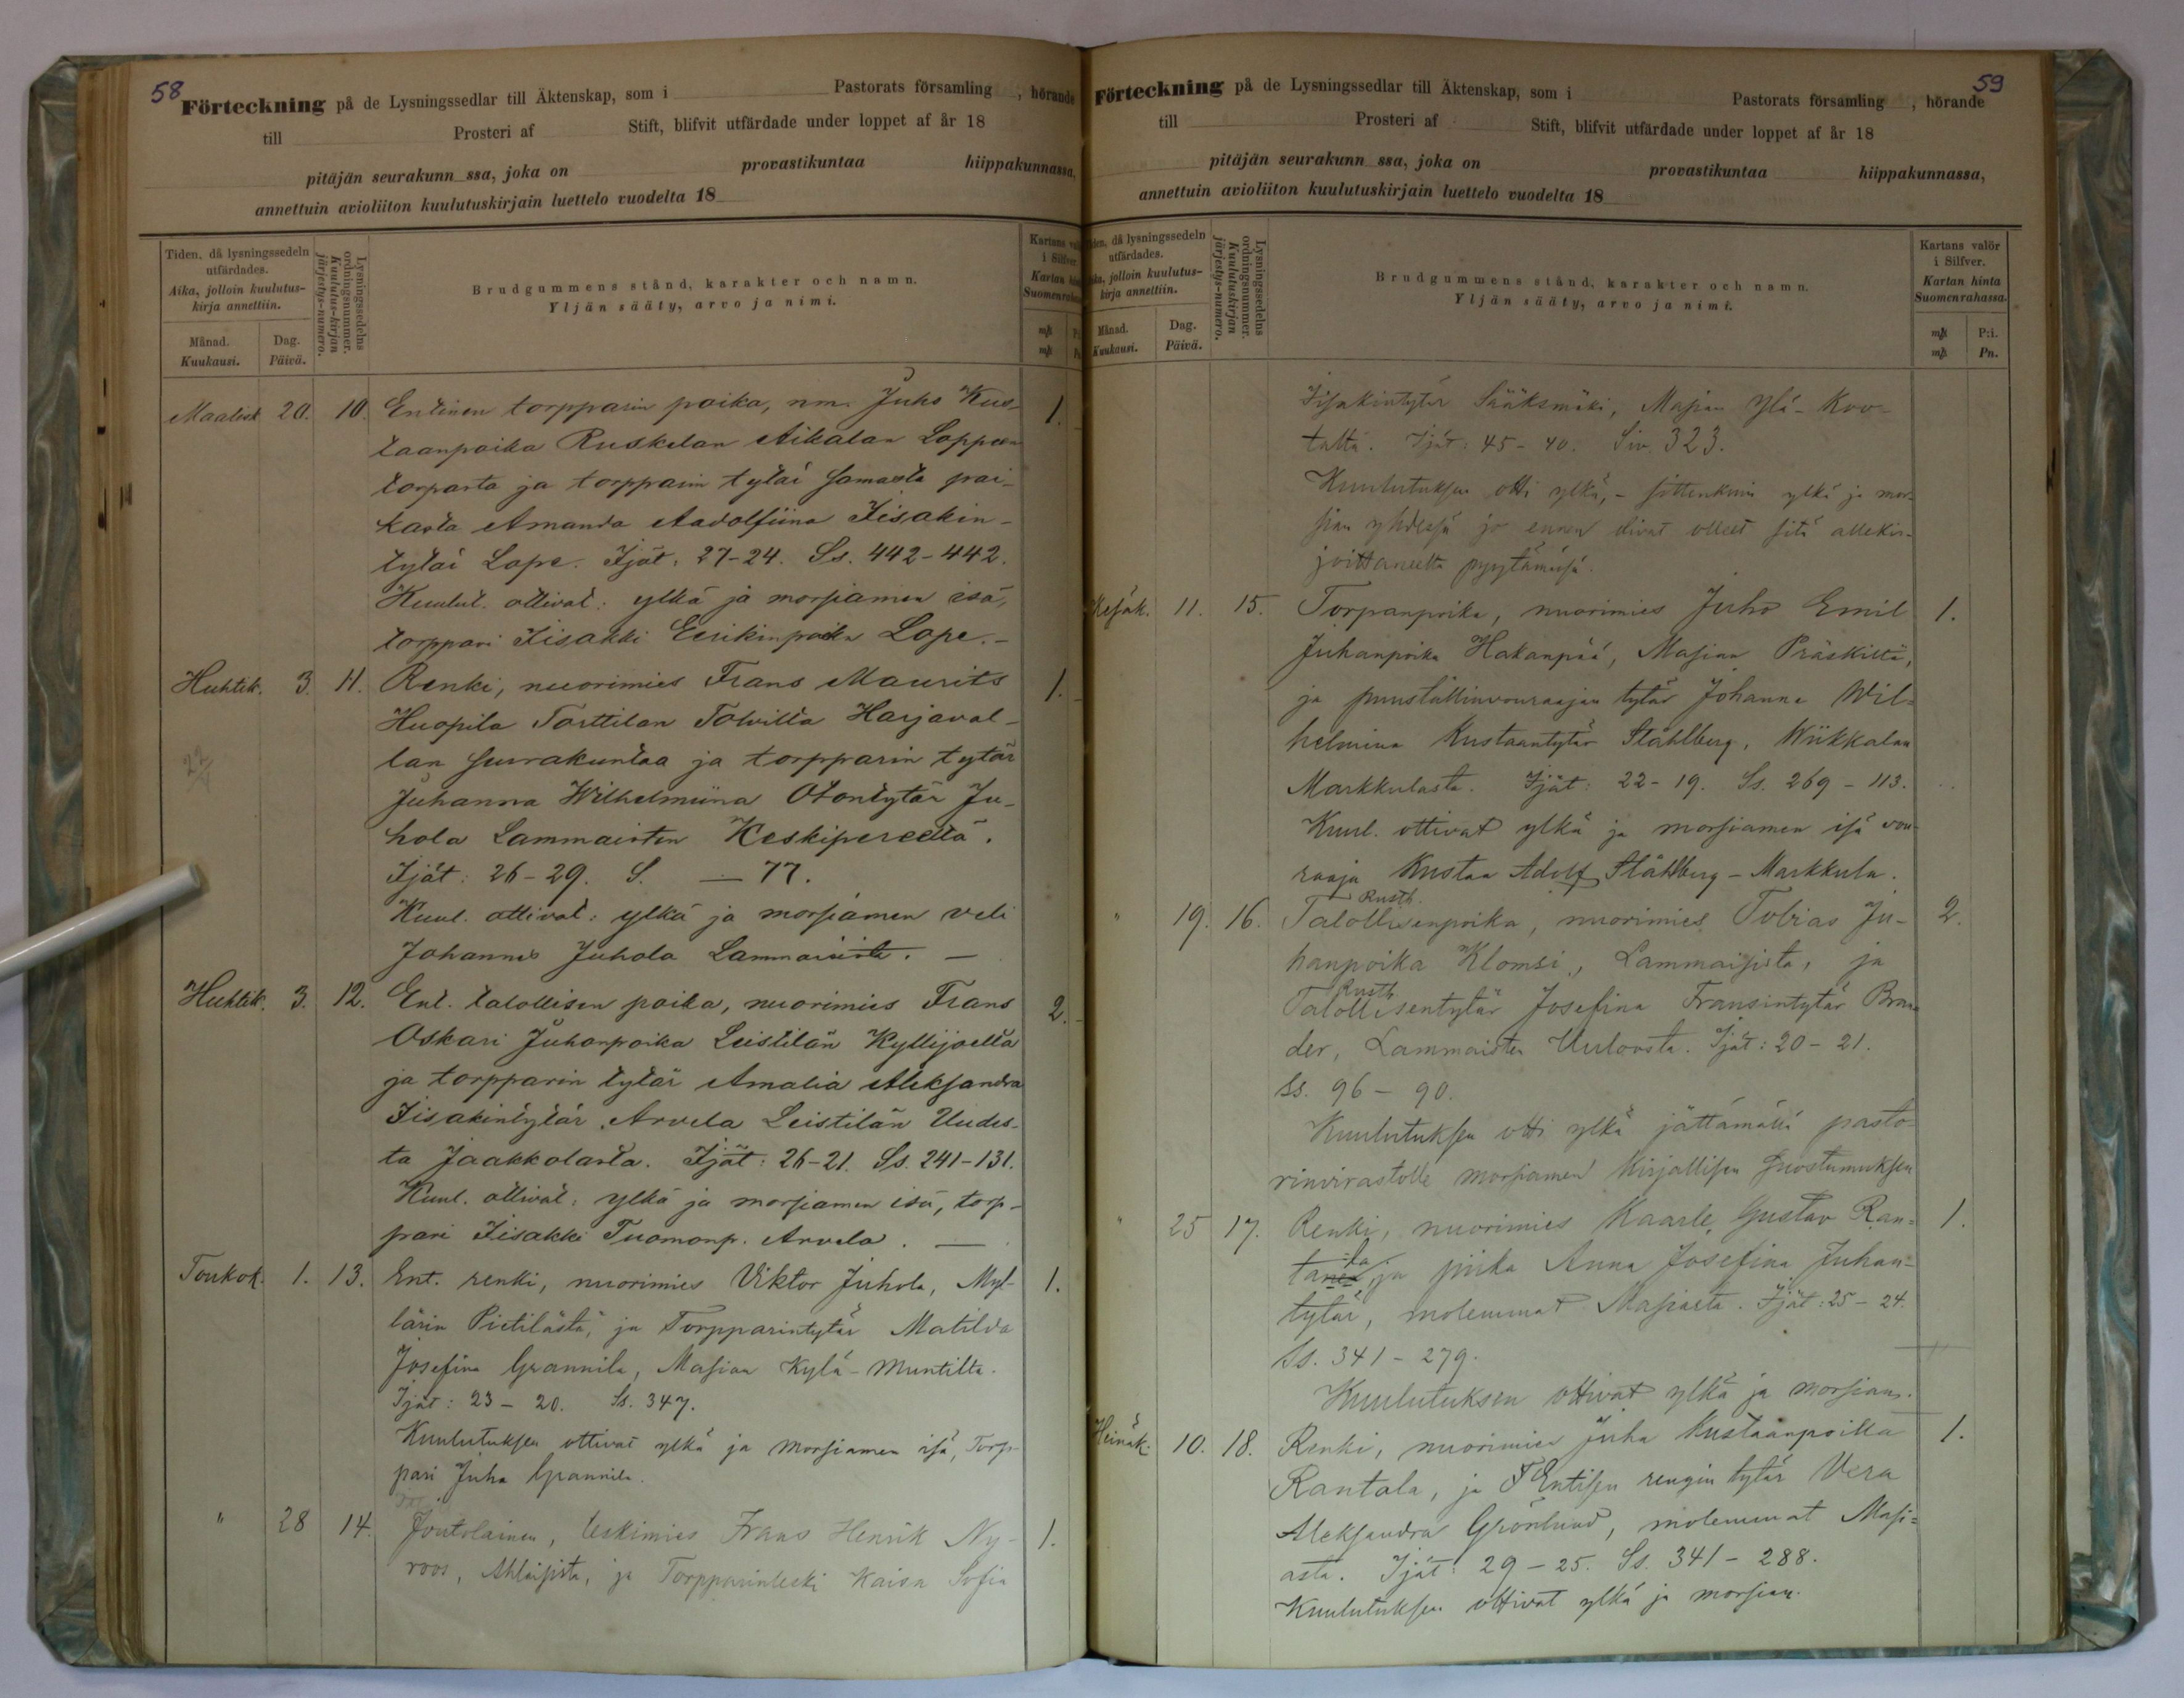 58
Förteckning på de Lysningssedlar till Äktenskap, som i Pastorats församling , hörande
till Prosteri af Stift, blifvit utfärdade under loppet af år 18
pitäjän seurakunn ssa, joka on provastikuntaa hiippakunnassa,
annettuin avioliiton kuulutuskirjain luettelo vuodelta 18
Tiden, då lysningssedeln
utfärdades.
Aika, jolloin kuulutus-
kirja annettiin.
Månad.
Kuukausi.
Dag.
Päivä.
Lysningssedelns
ordningsnummer.
Kuulutus-kirjan
järjestys-numero.
Brudgummens stånd, karakter och namn.
Yljän sääty, arvo ja nimi.
Kartans
i Silfver.
Kartan
m/k
m/k
Maalisk 20. 10. Entinen torpparin poika, nm. Juho Kus- 1.
taanpoika Ruskelan Aikalan Loppeen
torpasta ja torpparin tytär samasta pai-
kasta Amanda Aadolfiina Iisakin-
tytär Lope. Ijät. 27-24. Ss. 442-442.
Kuulut. ottivat: ylkä ja morsiamen isä,
torppari Iisakki Eerikinpoika Lope.-
Huhtik. 3. 11. Renki, nuorimies Frans Maurits 1.
Huopila Torttilan Tolvilta Harjaval-
lan seurakuntaa ja torpparin tytär
Juhanna Wilhelmiina Otontytär Ju-
hola Lammaisten Keskipereeltä.
Ijät: 26-29. S. — 77.
Kuul. ottivat: ylkä ja morsiamen veli
Johannes Juhola Lammaisista. —
Huhtik. 3. 12. Ent. talollisen poika, nuorimies Frans 2.
Oskari Juhanpoika Leistilän Kyllijoelta
ja torpparin tytär Amalia Aleksandra
Iisakintytär Arvela Leistilän Uudes-
ta Jaakkolasta. Ijät: 26-21. Ss. 241-131.
Kuul. ottivat: ylkä ja morsiamen isä, torp-
pari Iisakki Tuomonp. Arvela. —
Toukok. 1. 13. Ent. renki, nuorimies Viktor Juhola, Myl- 1.
lärin Pietilästä, ja Torpparintytär Matilda
Josefina Grannila, Masian Kylä-Muntilta.
Ijät: 23 - 20. Ss. 347.
Kuulutuksen ottivat ylkä ja morsiamen isä, Torp-
pari Juha Grannila.
" 28 14. Joutolainen, leskimies Frans Henrik Ny- 1.
roos, Ahlaisista, ja Torpparinleski Kaisa Sofia
59
Förteckning på de Lysningssedlar till Äktenskap, som i Pastorats församling , hörande
till Prosteri af Stift, blifvit utfärdade under loppet af år 18
pitäjän seurakunn ssa, joka on provastikuntaa hiippakunnassa,
annettuin avioliiton kuulutuskirjain luettelo vuodelta 18
Tiden, då lysningssedeln
utfärdades.
Aika, jolloin kuulutus-
kirja annettiin.
Månad.
Kuukausi.
Dag.
Päivä.
Lysningssedelns
ordningsnummer.
Kuulutuskirjan
järjestys-numero.
Brudgummens stånd, karakter och namn.
Yljän sääty, arvo ja nimi.
Kartans valör
i Silfver.
Kartan hinta
Suomenrahassa.
m/k P:i.
m/k Pn.
Iisakintytär Sääksmäki, Masian Ylä-Koo-
talta. Ijät: 45 - 40. Siv. 323.
Kuulutuksen otti ylkä, - sittenkuin ylkä ja mor-
sian yhdessä jo ennen olivat olleet sitä allekir-
joittaneelta pyytämässä.
Kesäk. 11. 15. Torpanpoika, nuorimies Juho Emil 1.
Juhanpoika Hakanpää, Masian Präskiltä,
ja puustellinvouraajan tytär Johanna Wil-
helmina Kustaantytär Ståhlberg, Wiikkalan
Markkulasta. Ijät: 22 - 19. Ss. 269 - 113.
Kuul. ottivat ylkä ja morsiamen isä vou-
raaja Kustaa Adolf Ståhlberg - Markkula.
Rusth.
" 19. 16. Talollisenpoika, nuorimies Tobias Ju- 2.
hanpoika Klomsi, Lammaisista, ja
Rusth
Talollisentytär Josefina Fransintytär Bran-
der, Lammaisten Uulovsta. Ijät: 20 - 21.
Ss. 96 - 90.
Kuulutuksen otti ylkä jättämällä pasto-
rinvirastolle morsiamen kirjallisen suostumuksen
" 25 17. Renki, nuorimies Kaarle Gustav Ran- 1.
tala, ja piika Anna Josefina Juhan-
tytär, molemmat Masiasta. Ijät: 25 - 24.
Ss. 341 - 279.
Kuulutuksen ottivat ylkä ja morsian.
Heinäk. 10. 18. Renki, nuorimies Juha Kustaanpoika 1.
Rantala, ja Entisen rengin tytär Vera
Aleksandra Grönlund, molemmat Masi-
asta. Ijät: 29 - 25. Ss. 341 - 288.
Kuulutuksen ottivat ylkä ja morsian.